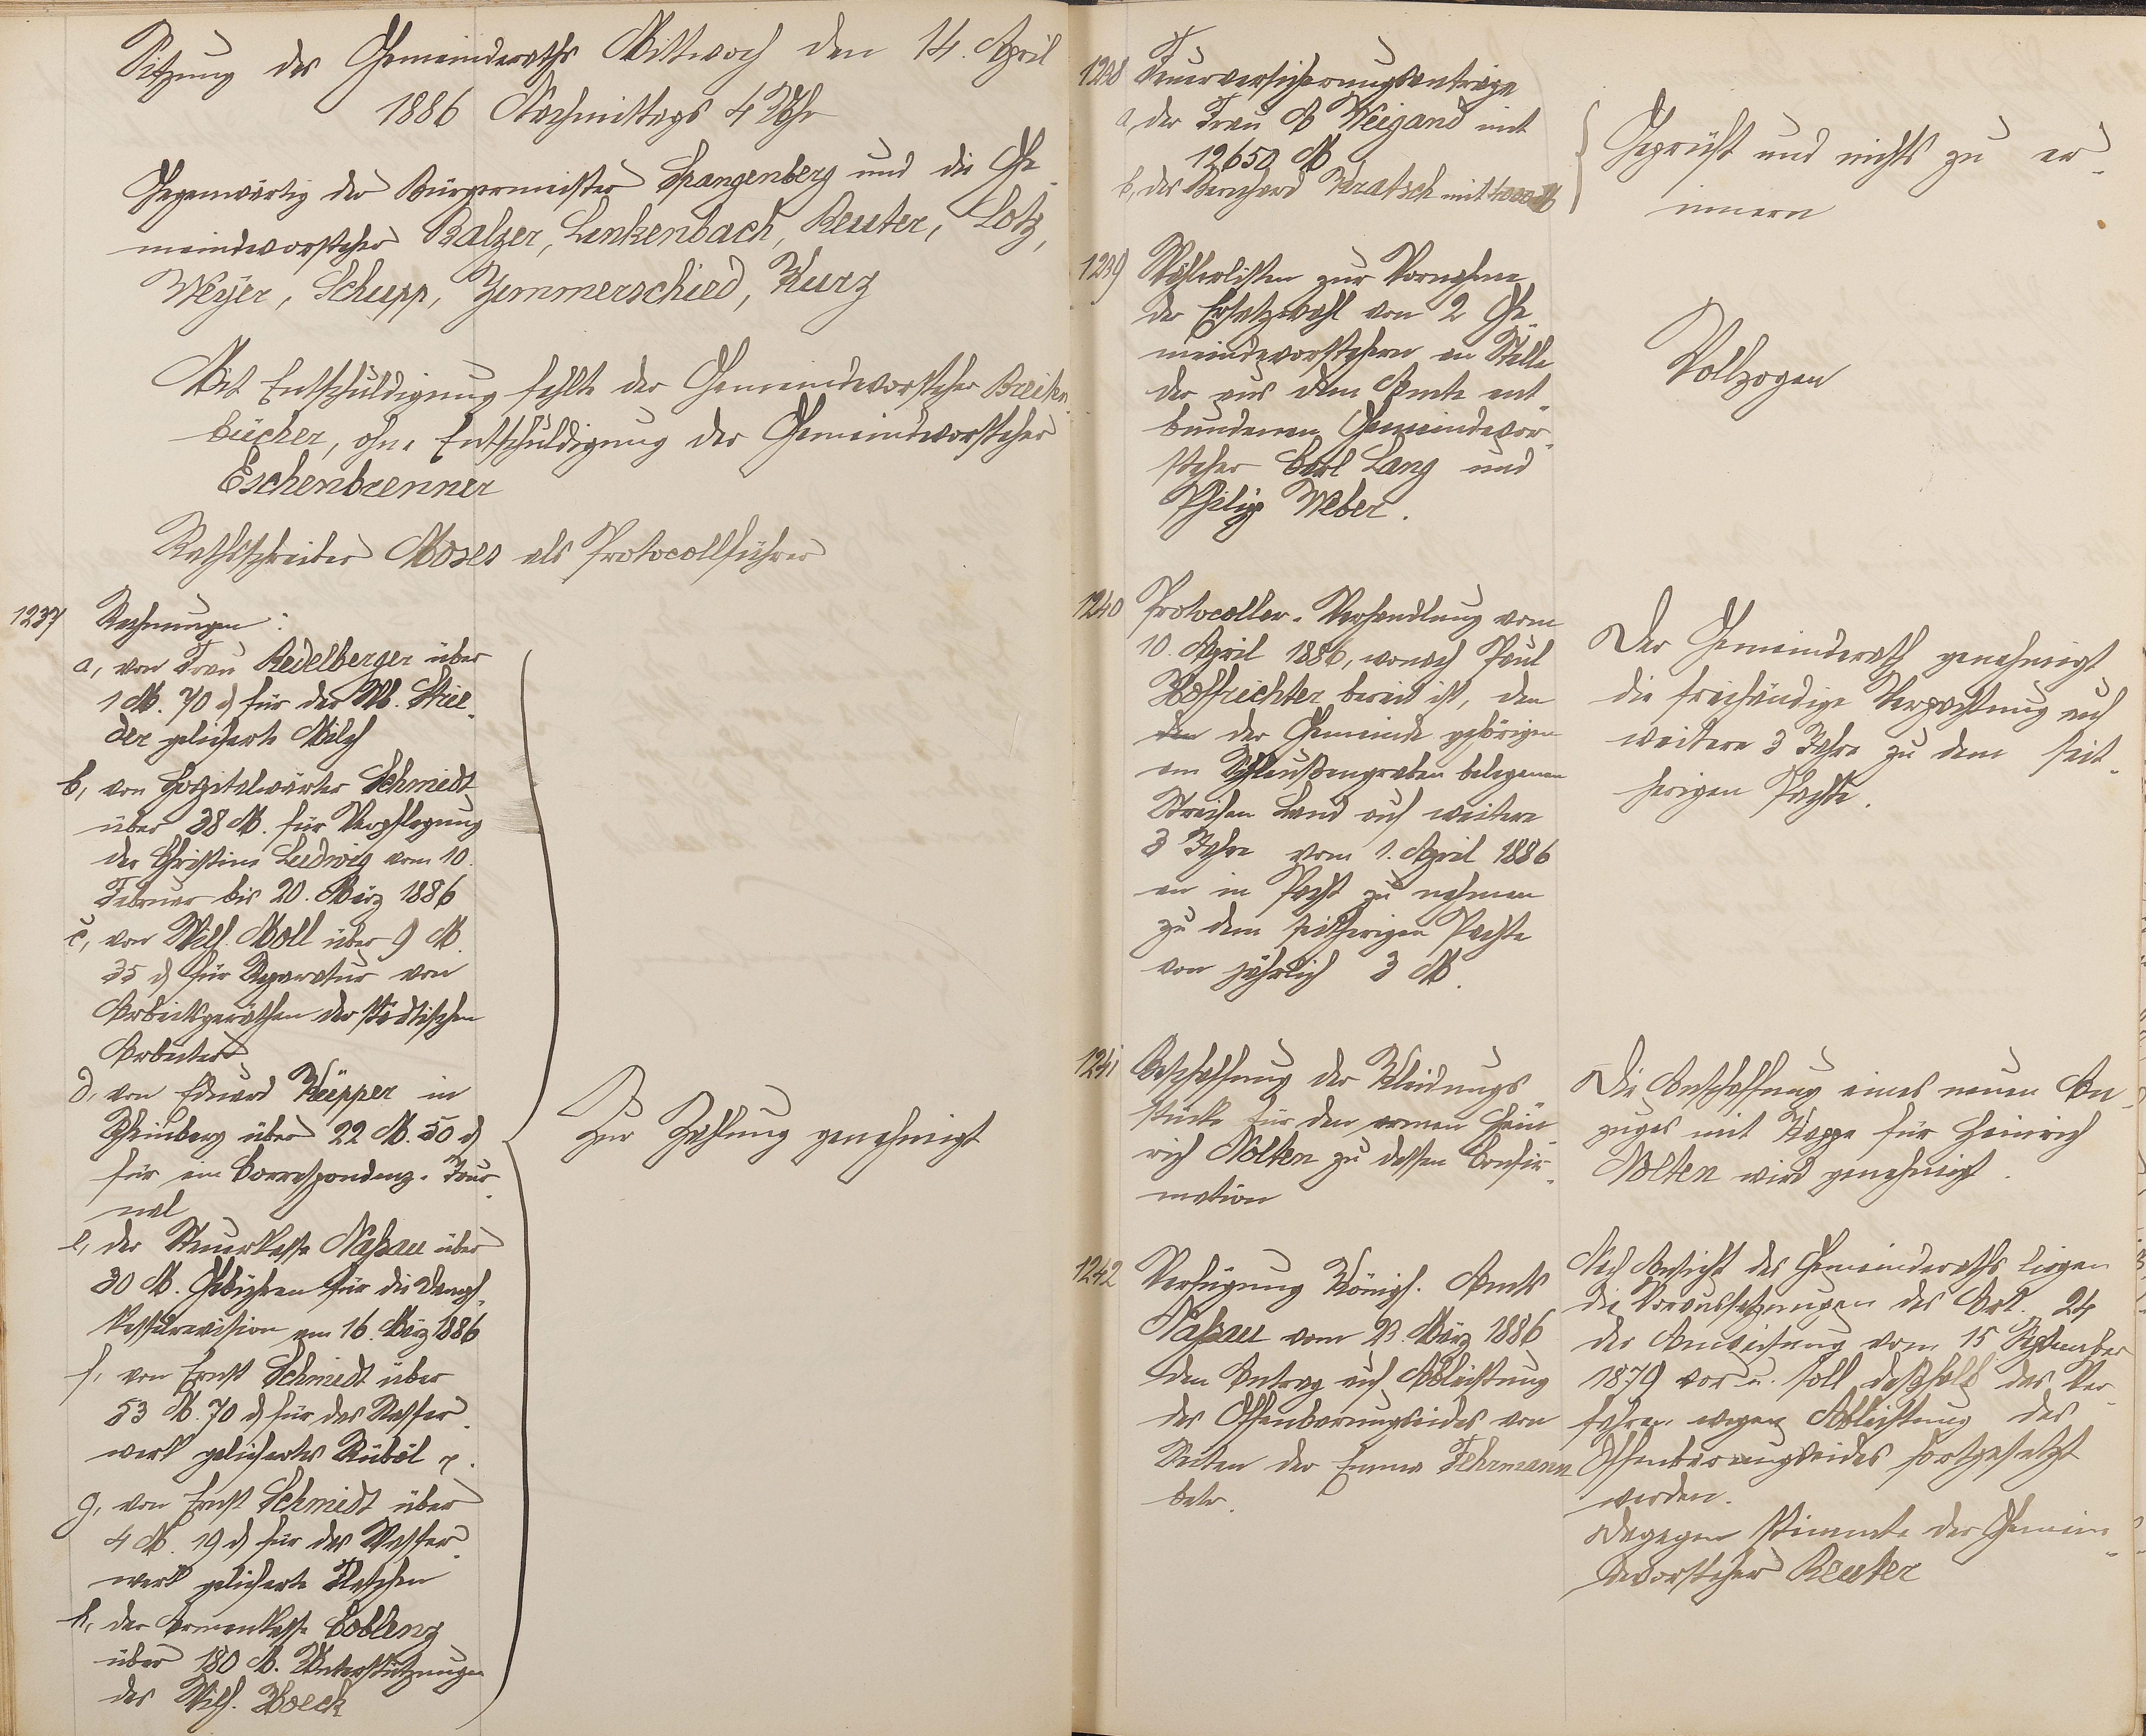 Sitzung des Gemeinderaths Mittwoch den 14. April
1886 Nachmittags 4 Uhr
Gegenwärtig der Bürgermeister Spangenberg und die Ge-
meindevorsteher Balzer, Linkenbach, Reuter, Lotz,
Meyer, Schupp, Zimmerschied, Kurz
Mit Entschuldigung fehlte der Gemeindevorsteher Breiten-
bücher, ohne Entschuldigung der Gemeindevorsteher
Eschenbrenner
Rathsschreiber Moses als Protocollführer
1237 Rechnungen:
a, von Frau Redelberger über
1 M. 70 d für der M. Strie-
der gelieferte Milch
b, von Hospitalwärter Schmidt
über 38 M. für Verpflegung
der Christine Ludwig vom 10.
Februar bis 20. März 1886
c, von Wilh. Moll über 9 M.
35 d für Reparatur von
Arbeitsgeräthen der städtischen
Arbeiter
d, von Eduard Küpper in
Rheinberg über 22 M. 50 d
für ein Correspondenz-Jour-
nal
e, der Steuerkasse Naßau über
30 M. Gebühren für die Dampf-
kesselrevision am 16. März 1886
f, von Ernst Schmidt über
53 M. 70 d für das Wasser-
werk geliefertes Rüböl p.
g, von Ernst Schmidt über
4 M. 19 d für das Wasser-
werk gelieferte Flaschen
h, der Armenkasse Coblenz
über 180 M. Unterstützungen
des Wilh. Hoeck
Zur Zahlung genehmigt
1238 Feuerversicherungsanträge
a, der Frau A Weigand mit
12650 M
b, des Bernhard Kratsch mit 4000 M
Geprüft und nichts zu er-
innern
1239 Wählerlisten zur Vornahme
der Ersatzwahl von 2 Ge-
meindevorstehern an Stelle
der aus dem Amte ent-
bundenen Gemeindevor-
steher Carl Lang und
Philipp Weber.
Vollzogen
1240 Protocollar-Verhandlung vom
10. April 1886, wonach Paul
Hoffrichter bereit ist, den
den der Gemeinde gehörigen
am Schleußengraben belegenen
Streifen Land auf weitere
3 Jahre vom 1. April 1886
an in Pacht zu nehmen
zu dem seitherigen Pachte
von jährlich 3 M.
Der Gemeinderath genehmigt
die freihändige Verpachtung auf
weitere 3 Jahre zu dem seit-
herigen Pachte.
1241 Beschaffung der Kleidungs-
stücke für den armen Hein-
rich Nolten zu dessen Confir-
mation
Die Anschaffung eines neuen An-
zuges mit Kappe für Heinrich
Nolten wird genehmigt.
1242 Verfügung Königl. Amts
Naßau vom 23. März 1886
den Antrag auf Ableistung
des Offenbarungseides von
Seiten der Emma Fehrmann
betr.
Nach Ansicht des Gemeinderaths liegen
die Voraussetzungen des Art. 24
der Anweisung vom 15 September
1879 vor u. soll deßhalb das Ver-
fahren wegen Ableistung des
Offenbarungseides fortgesetzt
werden.
Dagegen stimmte der Gemein-
devorsteher Reuter